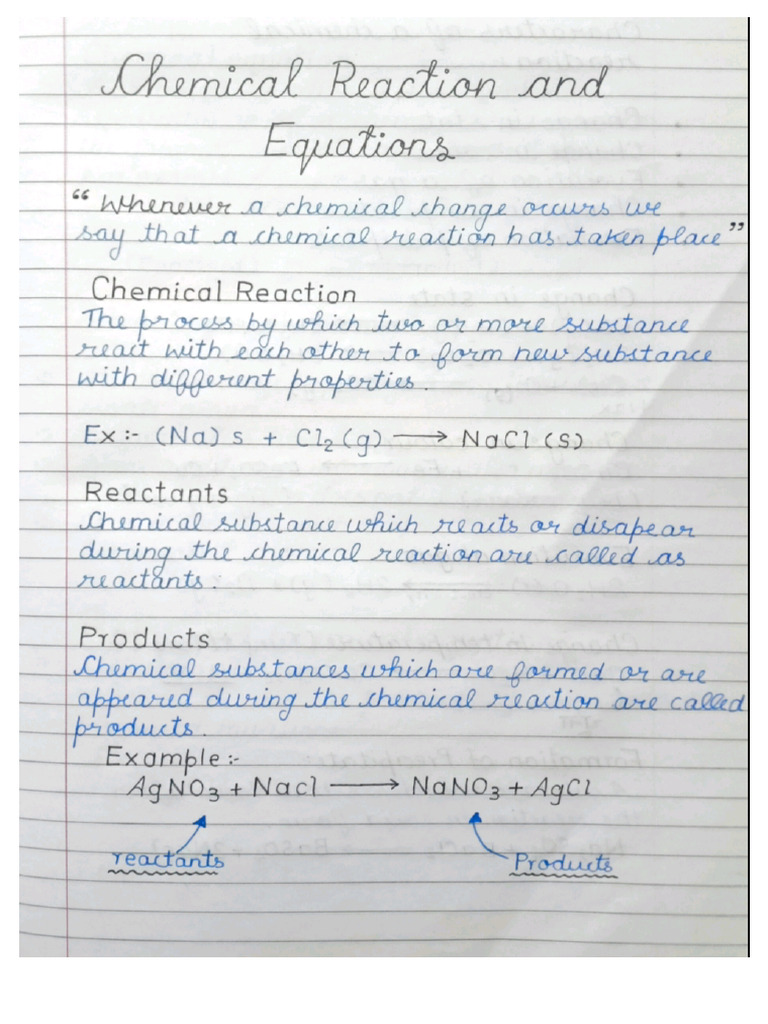 Chemical Reaction and
Equations
“ Whenever a chemical change occurs we
say that a chemical reaction has taken place ”
Chemical Reaction
The process by which two or more substance
react with each other to form new substance
with different properties.
Ex :- (Na) s + Cl₂ (g) ⟶ NaCl (s)
Reactants
Chemical substance which reacts or disapear
during the chemical reaction are called as
reactants.
Products
Chemical substances which are formed or are
appeared during the chemical reaction are called
products.
Example :-
AgNO₃ + Nacl ⟶ NaNO₃ + AgCl
reactants Products